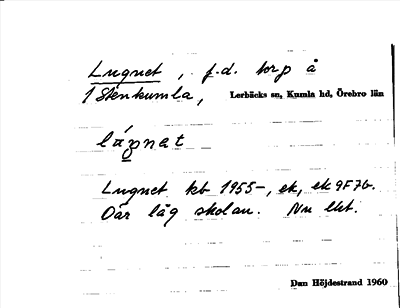 Lugnet, f.d. torp å
1 Stenkumla, Lerbäcks sn, Kumla hd, Örebro län
lúgnat
Lugnet kb 1955–, ek, ek 9F7b.
Där låg skolan. Nu lht.
Dan Höjdestrand 1960